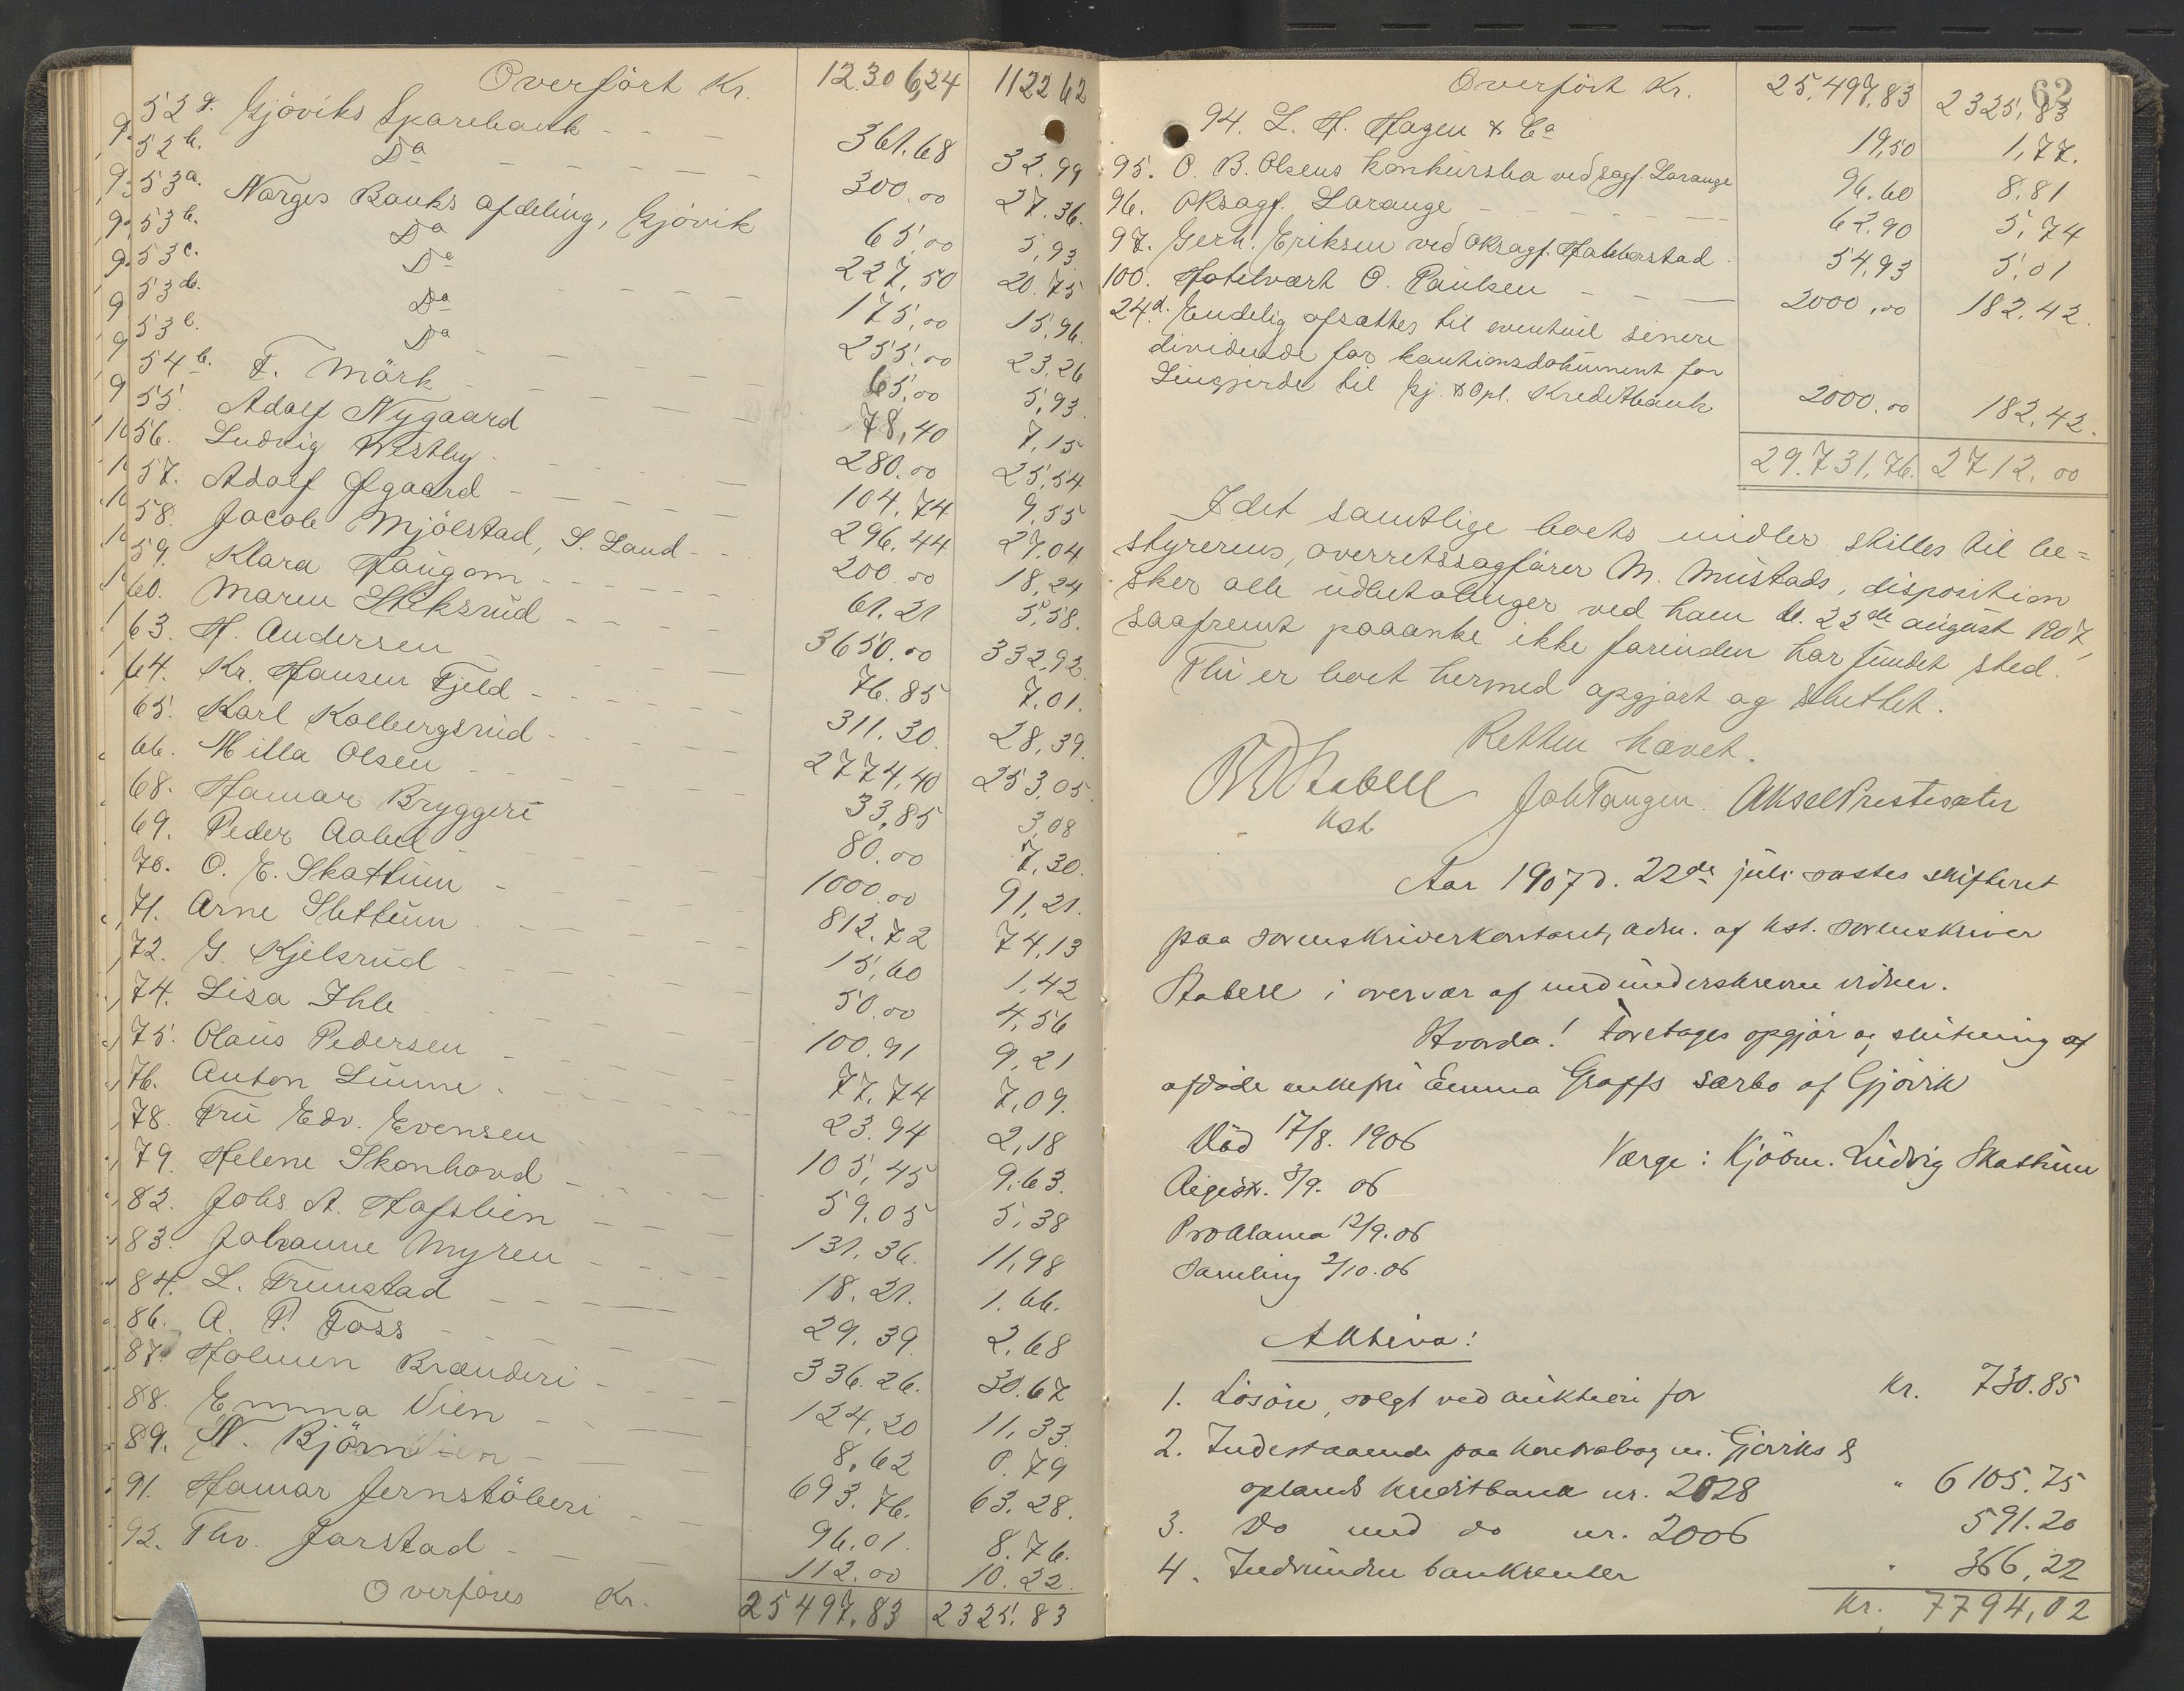 Overført Kr. 12306,24 1122 62
52 g. Gjöviks Sparebank 361.68 32.99
52 h. Do 300.00 27.36.
53 a. Norges Banks afdeling, Gjövik 65,00 5,93
53 b. Do 227,50 20.75
53 c. Do 175,00 15,96.
53 d. Do 255.00 23,26
53 e. Do 65,00 5,93.
54 b. F. Mörk 78,40 7,15
55 Adolf Nygaard 280.00 25,54
56. Ludvig Westby 104,74 9,55
57. Adolf Ølgaard 296,44 27,04
58. Jacob Mjölstad, S. Land 200.00 18,24
59. Klara Haugom 61.21 5,58.
60. Maren Stiksrud 3650.00 332,92.
63. H. Andersen 76.85 7.01.
64. Kr. Hansen Fjeld 311.30. 28,39.
65. Karl Kolbergsrud 2774,40 253,05.
66. Milla Olsen 33,85 3,08
68. Hamar Bryggeri 80.00 7,30.
69. Peder Aabel 1000.00 91,21.
70. O. E. Skattum 812.72 74,13
71. Arne Slettum 15,60 1,42
72. G. Kjelsrud 50.00 4,56
74. Lisa Ihle 100.91 9,21
75. Olaus Pedersen 77,74 7,09.
76. Anton Lunne 23.94 2,18
78. Fru Edv. Evensen 105,45 9,63.
79. Helene Skonhovd 59.05 5,38
82. Johs. A. Hafslien 131.36. 11,98
83. Johanne Myren 18.21. 1.66.
84. L. Trunstad 29.39. 2,68
86. A. P. Foss 336.26. 30.67
87. Holmen Brænderi 124,20 11,33.
88. Emma Vien 8,62 0.79
89. N. Björn 693.76. 63.28.
91. Hamar Jernstöberi 96.01. 8.76.
92. Thv. Jarstad 112.00 10.22.
Overføres Kr. 25497.83 2325.83
62
Overført Kr. 25,497,83 2325,83
94. L. H. Hagen & Co 19,50 1,77.
95. O. B. Olsens konkursbo ved sagf. Larange 96.60 8.81
96. Oksagf. Larange 62.90 5,74
97. Gerh. Eriksen ved Oksagf. Halberstad 54,93 5,01
100. Hotelvært O. Paulsen 2000,00 182.42.
24 d. Endelig afsættes til eventuel senere
dividende for kautionsdokument for
Lingjerde til Gj. & Opl. Kreditbank 2000.00 182,42.
29.731,76. 2712,00
Idet samtlige boets midler stilles til be=
styrerens, overretssagfører M. Mustads, disposition
sker alle udbetalinger ved ham d. 22de august 1907,
saafremt paaanke ikke forinden har fundet sted.
Thi er boet hermed opgjort og sluttet.
Retten hævet.
Stabell Joh Tangen. Aksel Prestesæter
kst.
Aar 1907 d. 22de juli sattes skifteret
paa sorenskriverkontoret, adm. af kst. sorenskriver
Stabell i overvær af medunderskrevne vidner.
Hvorda! foretages opgjør og slutning af
afdøde enkefru Emma Graffs særbo af Gjøvik
Død 17/8. 1906 Værge: Kjøbm. Ludvig Skattum
Registr. 3/9. 06
Proklama 12/9.06
Samling 2/10.06
Aktiva:
1. Løsøre, solgt ved auktion for Kr. 730.85
2. Indestaaende paa kontrabog m. Gjøviks &
oplands kreditbank nr. 2028 " 6105.75
3. Do med do nr. 2006 591.20
4. Indvundne bankrenter " 366,22
Kr. 7794,02